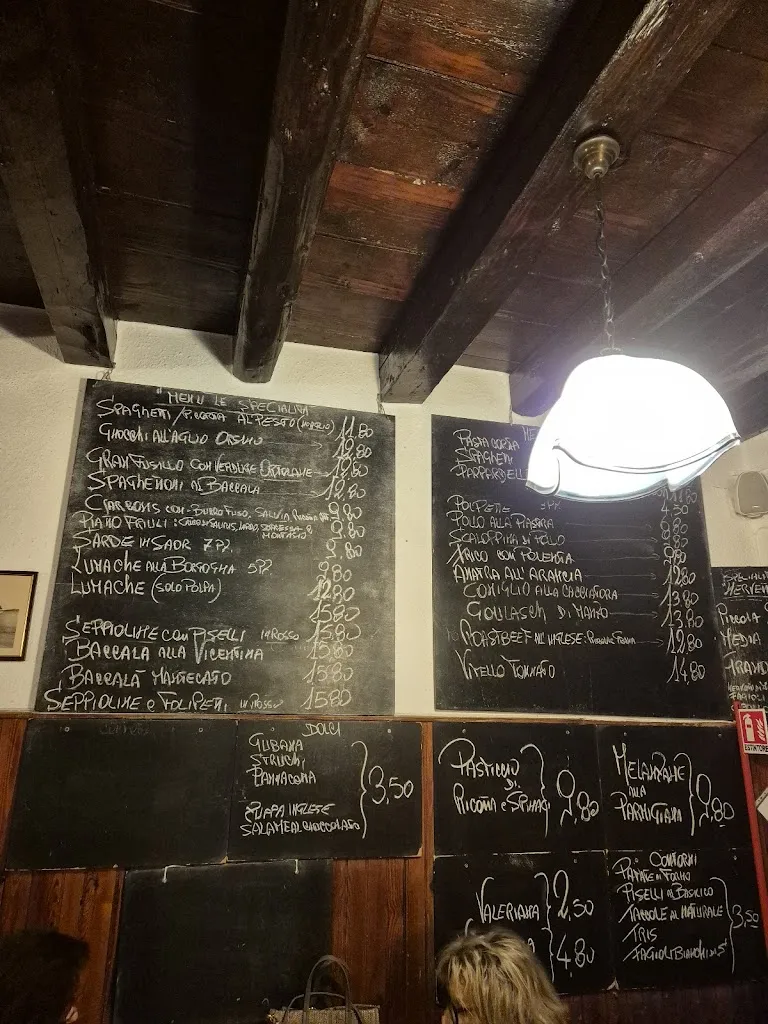 "MENU LE SPECIALITÀ
SPAGHETTI/P. CORTA AL PESTO 11,80
GNOCCHI ALL'AGLIO ORSINO 12,80
GRAN FUSILLO CON VERDURE ORTOLANE 12,80
SPAGHETTONI AL BACCALÀ 12,80
CJARSONS CON BURRO FUSO, SALVIA, 9,80
PIATTO FRIULI: LARDO, SOPRESSA E
MONTASIO
SARDE IN SAOR 7 PZ. 9,80
LUMACHE ALLA BORGOGNA 9,80
LUMACHE (SOLO POLPA) 12,80
15,80
SEPPIOLINE CON PISELLI IN ROSSO 15,80
BACCALÀ ALLA VICENTINA 15,80
BACCALÀ MANTECATO 15,80
SEPPIOLINE E FOLIPETTI IN ROSSO 15,80
PASTA CORTA
SPAGHETTI
PAPPARDELLE
11,80
POLPETTE 4,50
POLLO ALLA PIASTRA 6,80
SCALOPPINA DI POLLO 8,80
FRICO CON POLENTA 9,80
ANATRA ALL'ARANCIA 12,80
CONIGLIO ALLA CACCIATORA 13,80
GOULASCH DI MANZO 13,80
ROASTBEEF ALL'INGLESE: 12,80
VITELLO TONNATO 14,80
PICCOLA
MEDIA
GRANDE
FAGIOLI
ESTINTORE
CONTORNI
DOLCI
GUBANA
STRUCHI
PANNACOTTA
ZUPPA INGLESE
SALAME AL CIOCCOLATO
3,50
PASTICCIO
DI
RICOTTA E SPINACI
9,80
MELANZANE
ALLA
PARMIGIANA
9,80
VALERIANA 2,50
4,80
CONTORNI
PATATE AL FORNO
PISELLI AL BASILICO
TACCOLE AL NATURALE
TRIS
FAGIOLI BIANCHI DI S
3,50